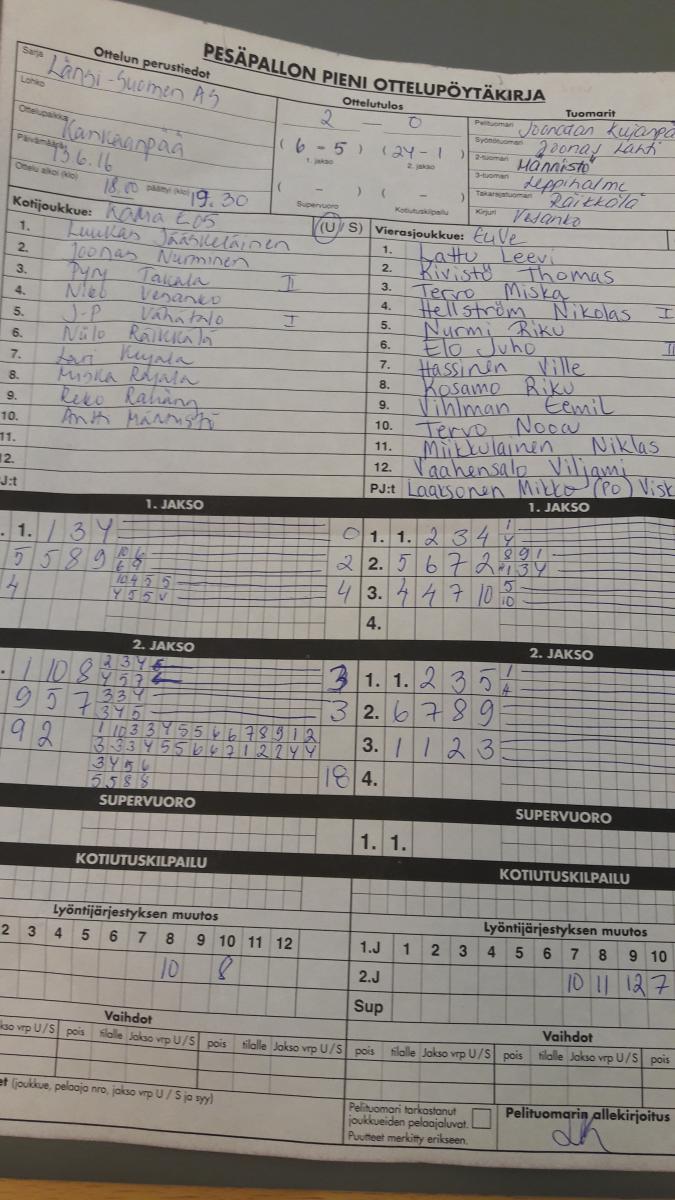 PESÄPALLON PIENI OTTELUPÖYTÄKIRJA
Ottelun perustiedot
Sarja Länsi-Suomen AS
Lohko
Ottelupaikka Kankaanpää
Päivämäärä 13.6.16
Ottelu alkoi (klo) 18.00 päättyi (klo) 19.30
Ottelutulos
2 — 0
(6 - 5) (24 - 1)
1. jakso 2. jakso
( - ) ( - )
Supervuoro Kotiutuskilpailu
Tuomarit
Pelituomari Joonatan Kujanpä
Syöttötuomari Joonas Lahti
2-tuomari Männistö
3-tuomari Leppihalme
Takarajatuomari Räikkölä
Kirjuri Vesanko
Kotijoukkue: KaMa E05 (U/S)
1. Luukas Jääskeläinen
2. Joonas Nurminen
3. Pyry Takala II
4. Niko Vesanko
5. J-P Vähätalo I
6. Niilo Räikkälä
7. Lari Kujala
8. Miska Rajala
9. Reko
10. Antti Männistö
11.
12.
J:t
Vierasjoukkue: EuVe
1. Lattu Leevi
2. Kivistö Thomas
3. Tervo Miska
4. Hellström Nikolas I
5. Nurmi Riku
6. Elo Juho II
7. Hassinen Ville
8. Kosamo Riku
9. Vihlman Eemil
10. Tervo Nooa
11. Miikkulainen Niklas
12. Vaahensalo Viljami
PJ:t Laaksonen Mikko (PO) Visk
1. JAKSO
. 1. 1 3 4 0
5 5 8 9 10 6 2
6 9
4 10 4 5 5 4
4 5 5
1. JAKSO
1. 1. 2 3 4 1
4
2. 5 6 7 2 8 9 1
1 3 4
3. 4 4 7 10 5
10
4.
2. JAKSO
. 1 10 8 2 3 4 3
4 5 7
9 5 7 3 3 4 3
3 4 5
9 2 1 10 3 3 4 5 5 6 6 7 8 9 1 2
3 3 3 4 5 5 6 6 7 1 2 2 4 4
3 4 5 6
5 5 8 8 18
2. JAKSO
1. 1. 2 3 5 1
2. 6 7 8 9
3. 1 1 2 3
4.
SUPERVUORO
SUPERVUORO
1. 1.
KOTIUTUSKILPAILU
KOTIUTUSKILPAILU
Lyöntijärjestyksen muutos
2 3 4 5 6 7 8 9 10 11 12
10 8
Lyöntijärjestyksen muutos
1.J 1 2 3 4 5 6 7 8 9 10
2.J 10 11 12 7
Sup
Vaihdot
kso vrp U/S pois tilalle Jakso vrp U/S pois tilalle Jakso vrp U/S
Vaihdot
pois tilalle Jakso vrp U/S pois tilalle Jakso vrp U/S pois
et (joukkue, pelaaja nro, jakso vrp U / S ja syy)
Pelituomari tarkastanut
joukkueiden pelaajaluvat.
Puutteet merkitty erikseen.
Pelituomarin allekirjoitus